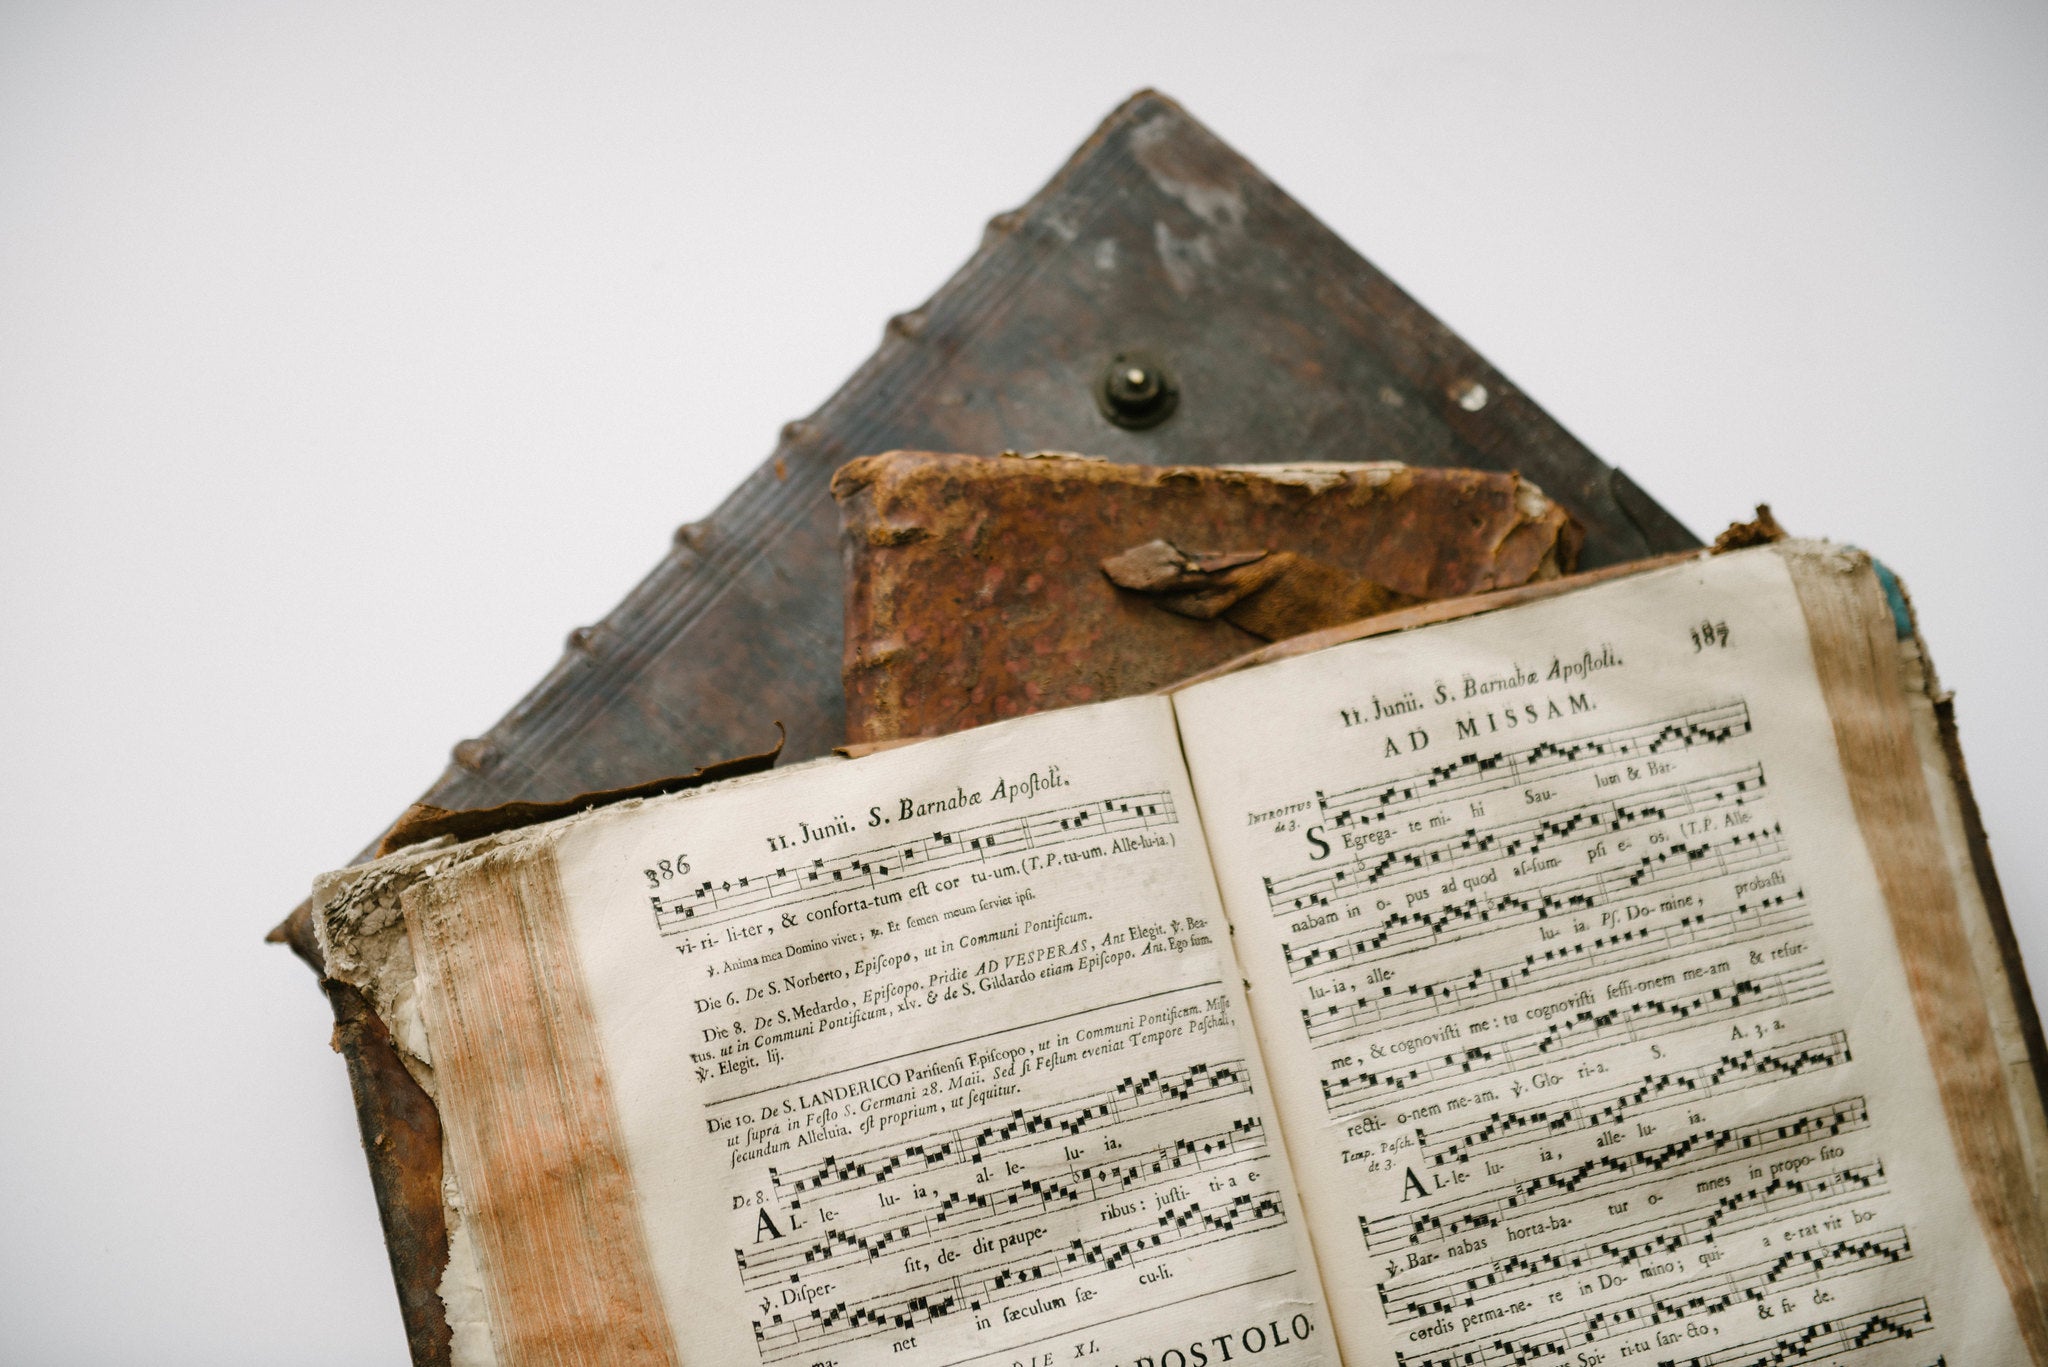 386
11. Junii. S. Barnabæ Apoſtoli.
vi- ri- li-ter, & conforta-tum eſt cor tu-um. (T. P. tu-um. Alle-lu-ia.)
℣. Anima mea Domino vivet; ℟. Et ſemen meum ſerviet ipſi.
Die 6. De S. Norberto, Epiſcopo, ut in Communi Pontificum.
Die 8. De S. Medardo, Epiſcopo. Pridie AD VESPERAS, Ant Elegit. ℣. Bea-
tus. ut in Communi Pontificum, xlv. & de S. Gildardo etiam Epiſcopo. Ant. Ego ſum.
℣. Elegit. lij.
Die 10. De S. LANDERICO Pariſienſi Epiſcopo, ut in Communi Pontificum. Miſſa
ut ſupra in Feſto S. Germani 28. Maii. Sed ſi Feſtum eveniat Tempore Paſchali,
ſecundum Alleluia. eſt proprium, ut ſequitur.
De 8.
AL- le- lu- ia, al- le- lu- ia.
℣. Diſper- ſit, de- dit paupe- ribus: juſti- ti- a e-
ma- net in ſæculum ſæ- cu-li.
DIE XI.
APOSTOLO.
387
11. Junii. S. Barnabæ Apoſtoli.
AD MISSAM.
INTROITUS
de 3.
SEgrega- te mi- hi Sau- lum & Bar-
nabam in o- pus ad quod aſſum- pſi e- os. (T. P. Alle-
lu- ia, alle- lu- ia. Pſ. Do- mine, probaſti
me, & cognoviſti me: tu cognoviſti ſeſſi-onem me-am & reſur-
recti- o-nem me-am. ℣. Glo- ri-a. S. A. 3. a.
Temp. Paſch.
de 3.
AL- le- lu- ia, alle- lu- ia.
℣. Bar- nabas horta-ba- tur o- mnes in propo-ſito
cordis perma-ne- re in Do- mino; qui- a e-rat vir bo-
Spi- ri-tu ſan-cto, & fi- de.